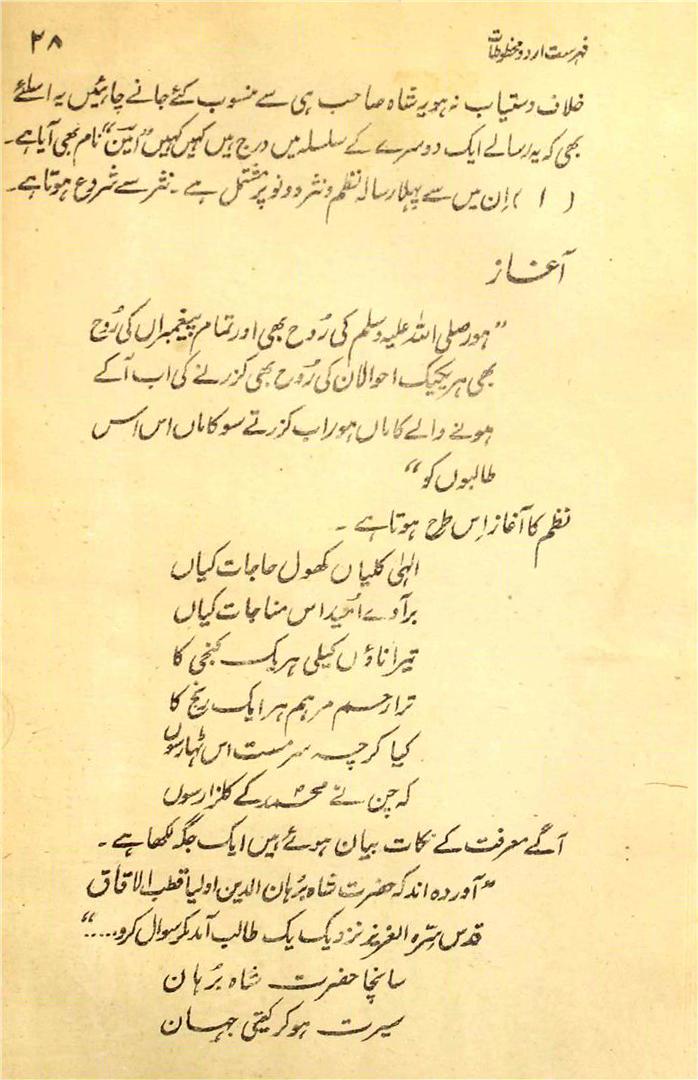 فہرست اردو مخطوطات
۲۸
خلاف دستیاب نہ ہو یہ شاہ صاحب ہی سے منسوب کئے جانے چاہئیں یہ اسلئے
بھی کہ یہ رسالے ایک دوسرے کے سلسلہ میں درج ہیں کہیں کہیں "امین" نام بھی آیا ہے۔
( ۱ ) اِن میں سے پہلا رسالہ نظم و نثر دونو پر مشتمل ہے ۔ نثر سے شروع ہوتا ہے۔
آغاز
"ہور صلی اللہ علیہ وسلم کی رُوح بھی اور تمام پیغمبراں کی رُوح
بھی ہر یکیک احوالان کی رُوح بھی گزرنے کی اب آکے
ہونے والے کاماں ہور اب گزرتے سو کاماں اس اس
طالبوں کو"
نظم کا آغاز اِس طرح ہوتا ہے ۔
الہٰی کلیاں کھول حاجات کیاں
بر آوے امید اس مناجات کیاں
تیرا ناؤں کیلی ہر یک گنجی کا
ترا رحم مرہم ہر ایک رنج کا
کیا گرچہ سرمست اس ٹھارسوں
کہ چن نے محمدؐ کے گلزارسوں
آگے معرفت کے نکات بیان ہوئے ہیں ایک جگہ لکھا ہے ۔
"آوردہ اند کہ حضرت شاہ بُرہان الدین اولیا قطب الافاق
قدس سّرہ العزیز نزدیک یک طالب آمد کر سوال کرد....."
سانچا حضرت شاہ بُرہان
سیرت ہوکر کیتی جہان